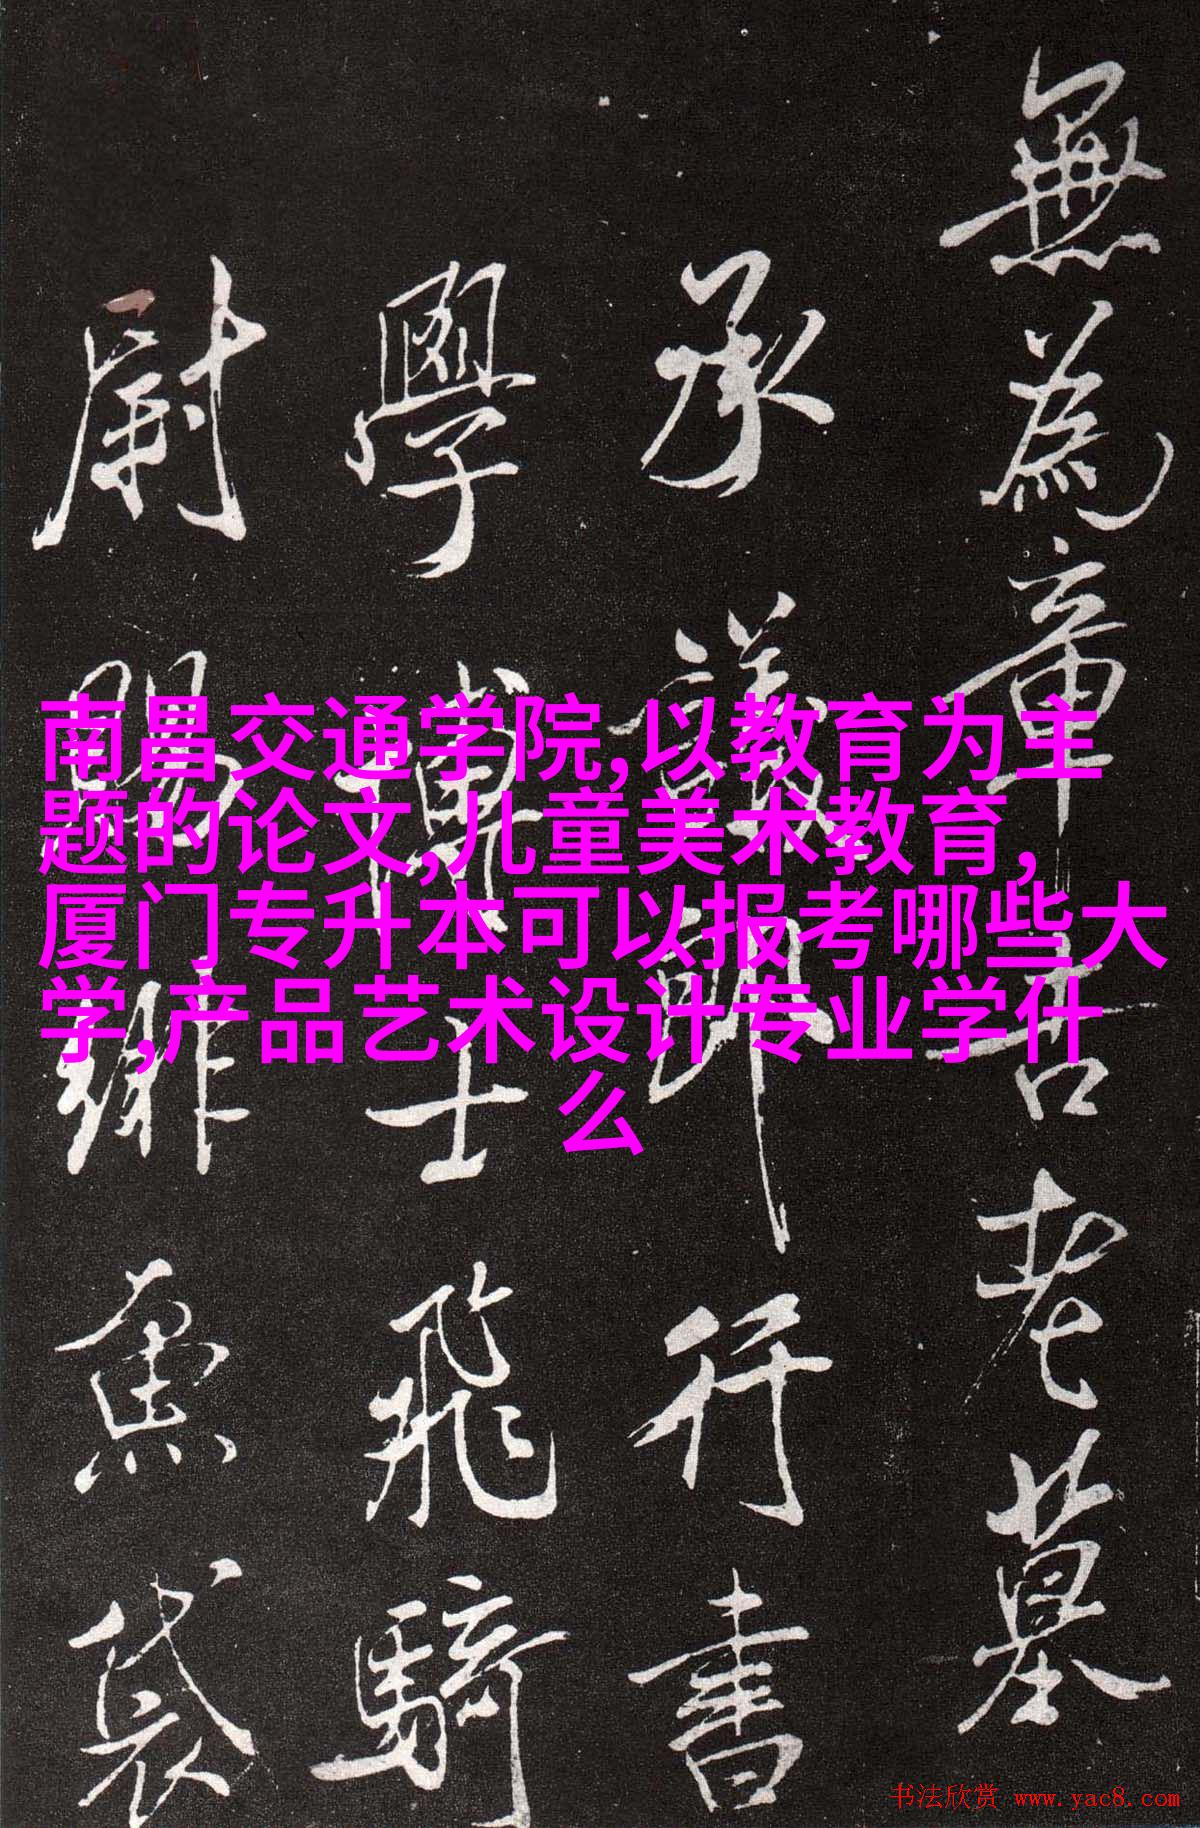 無為童吾老墓
承議郎行書
學博士飛騎
尉賜緋魚袋
南昌交通学院,以教育为主
题的论文,儿童美术教育,
厦门专升本可以报考哪些大
学,产品艺术设计专业学什
么
书法欣赏 www.yac8.com